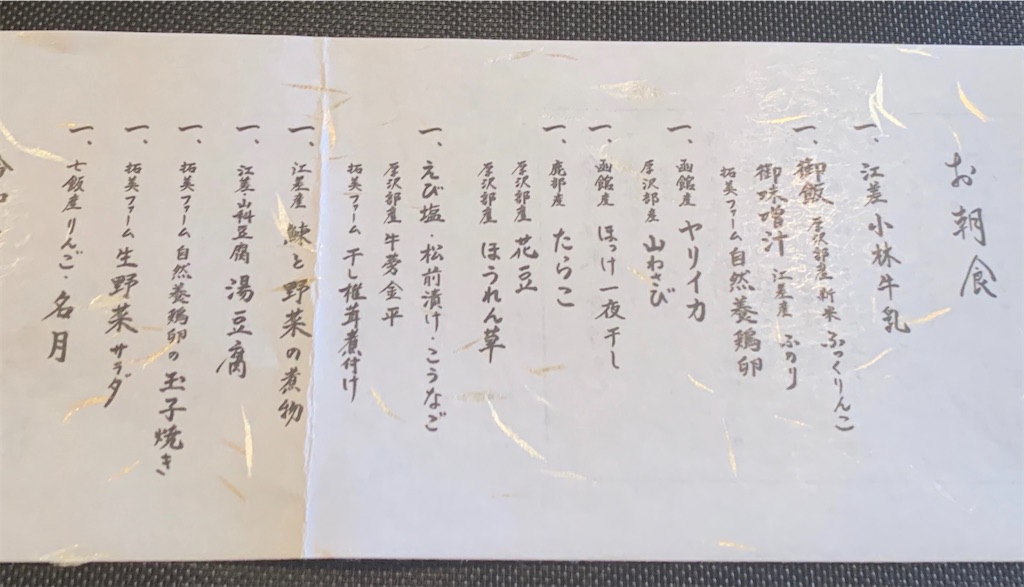 お朝食
一、江差 小林牛乳
一、御飯 厚沢部産新米 ふっくりんこ
御味噌汁 江差産 ふのり
拓美ファーム 自然養鶏卵
一、函館産 ヤリイカ
厚沢部産 山わさび
一、函館産 ほっけ一夜干し
一、鹿部産 たらこ
厚沢部産 花豆
厚沢部産 ほうれん草
一、えび塩・松前漬け・こうなご
厚沢部産 牛蒡金平
拓美ファーム 干し椎茸煮付け
一、江差産 鰊と野菜の煮物
一、江差山科豆腐 湯豆腐
一、拓美ファーム 自然養鶏卵の玉子焼き
一、拓美ファーム 生野菜サラダ
一、七飯産 りんご・名月